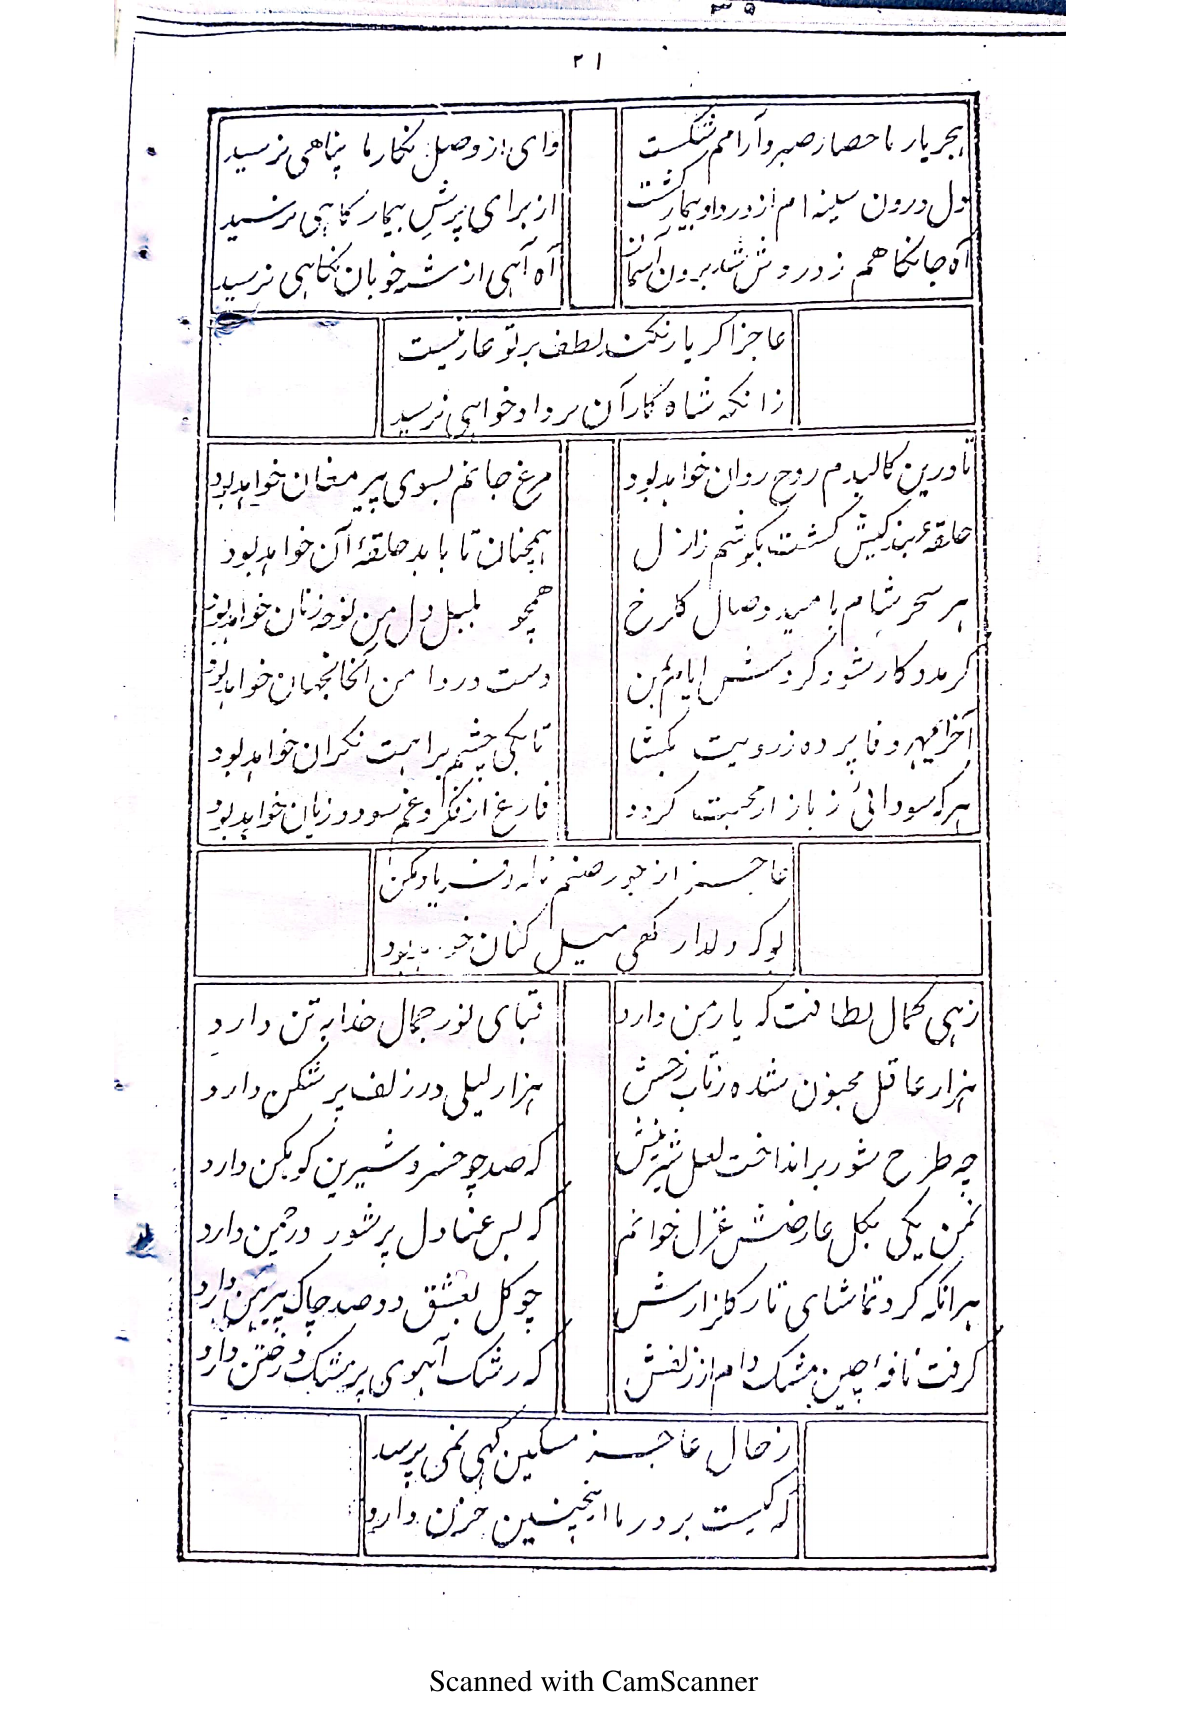 ۳۵
۲۱
هجر یار ما حصار صبر و آرامم شکست
وای از وصل نگار ما پناهی نرسید
دل درون سینه ام از درد او بیمار گشت
از برای پرسش بیمار گاهی نرسید
آه جانکاهم ز درونش شد برون آسمان
آه آهی از شه خوبان نگاهی نرسید
عاجزا گر یار نکند لطف بر تو عار نیست
زانکه شاه کار آن بر داد خواهی نرسید
تا درین کالبدم روح روان خواهد بود
مرغ جانم بسوی پیر مغان خواهد بود
حلقهٔ بندگیش گشت بگوشم ز ازل
همچنان تا بابد حلقهٔ آن خواهد بود
هر سحر شام بامید وصال گلرخ
همچو بلبل دل من نوحه زنان خواهد بود
گر مددکار شود گردش ایام بمن
دست در دامن آنجانجهان خواهد بود
آخر ایمهر وفا پرده ز رویت بکشا
تا بکی چشم براهت نگران خواهد بود
هر که سودائی ز بازار محبت گردد
فارغ از فکر و غم سود و زیان خواهد بود
عاجز از جور صنم ناله و فریاد مکن
لوکر دلدار گهی میل کنان خواهد بود
زهی کمال لطافت که یار من دارد
قبای نور جمال خدا به تن دارد
هزار عاقل مجنون شده ز تاب رخش
هزار لیلی در زلف پر شکن دارد
چه طرح شور بر انداخت لعل شیرینش
که صد چو خسرو شیرین کوهکن دارد
نمن یکی بگل عارضش غزل خوانم
که بس عنادل پر شور در چمن دارد
هر انکه کرد تماشای تار گلزارش
چو گل بعشق دو صد چاک پیرهن دارد
گرفت نافهٔ چین مشک دام از زلفش
که رشک آهوی پر مشک در ختن دارد
ز حال عاجز مسکین گهی نمی پرسد
که کیست بر در ما اینچنین حزن دارد
Scanned with CamScanner